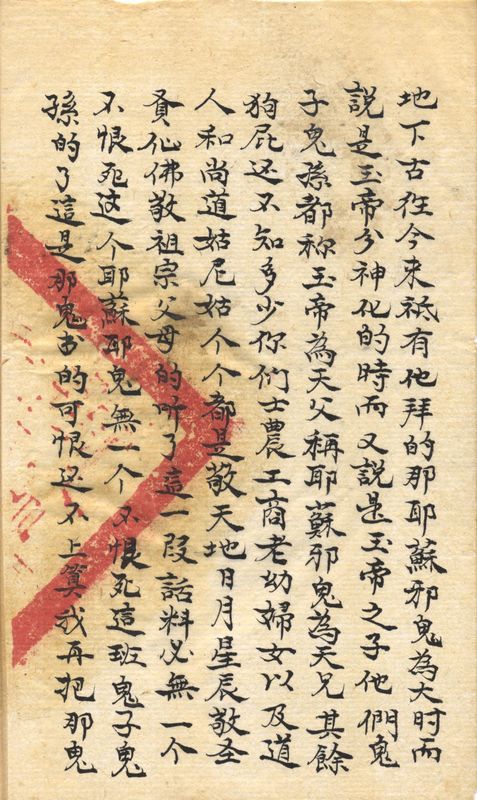 地下古徃今来祗有他拜的那耶蘇邪鬼為大时而
説是玉帝分神化的時而又説是玉帝之子他們鬼
子鬼孫都称玉帝為天父稱耶蘇邪鬼為天兄其餘
狗屁还不知多少你们士農工商老幼婦女以及道
人和尚道姑尼姑个个都是敬天地日月星辰敬圣
賁仙佛敬祖宗父母的听了這一段話料必無一个
不恨死这个耶蘇耶鬼無一个不恨死這班鬼子鬼
孫的了這是那鬼书的可恨还不上算我再把那鬼